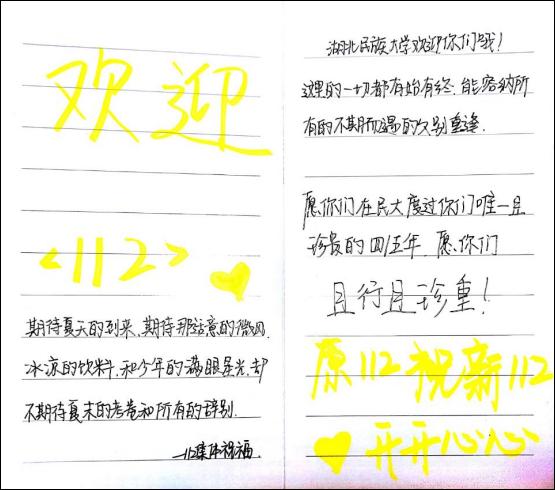 欢迎
<112>
期待夏天的到来,期待那意的微风,
冰凉的饮料,和今年的满眼星光,却
不期待夏末的考卷和所有的辞别.
—112集体祝福.
湖北民族大学欢迎你们哦!
这里的一切都有始有终,能容纳所
有的不期而遇的久别重逢.
愿你们在民大度过你们唯一且
珍贵的四/五年.愿你们
且行且珍重!
原112祝新112
开开心心